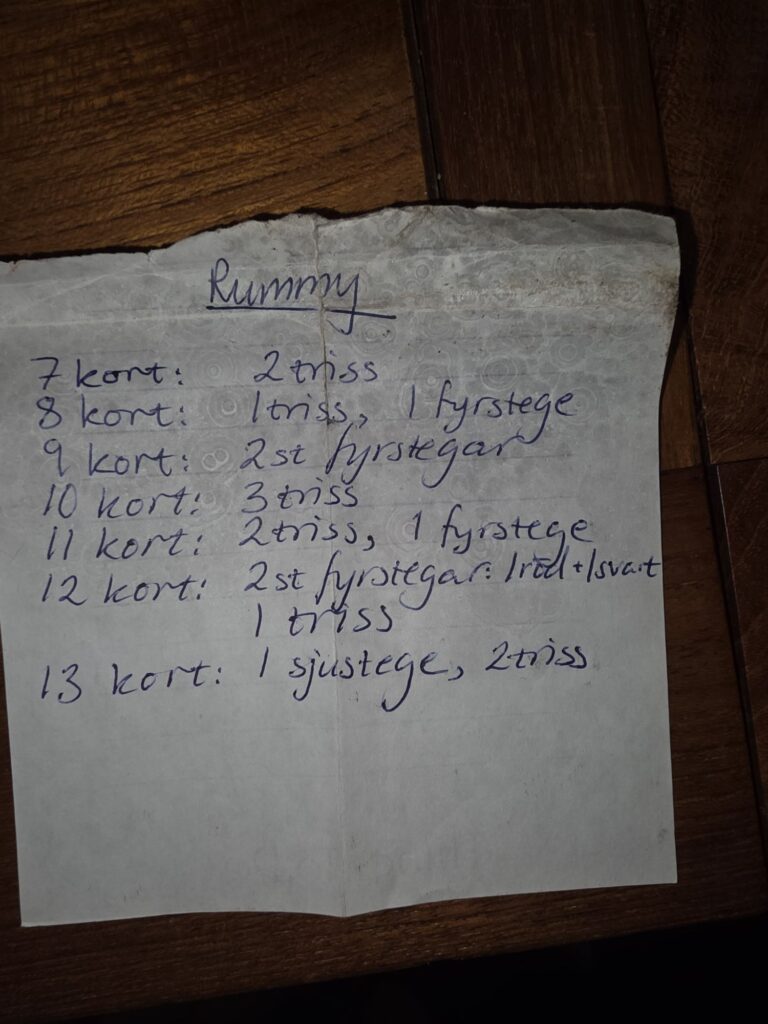 Rummy
7 kort: 2 triss
8 kort: 1 triss, 1 fyrstege
9 kort: 2 st fyrstegar
10 kort: 3 triss
11 kort: 2 triss, 1 fyrstege
12 kort: 2 st fyrstegar: 1 röd + 1 svart
1 triss
13 kort: 1 sjustege, 2 triss